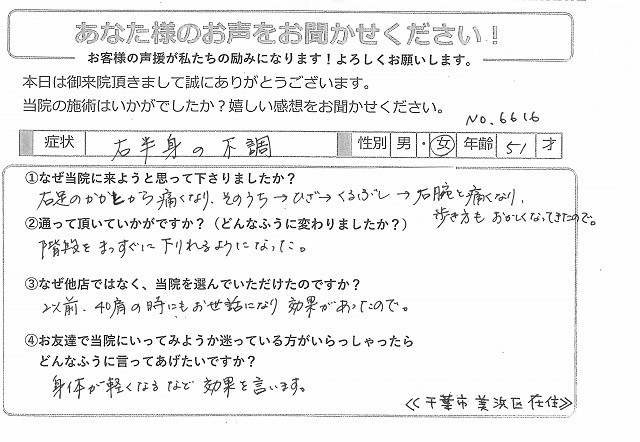 あなた様のお声をお聞かせください！
お客様の声援が私たちの励みになります！よろしくお願いします。
本日は御来院頂きまして誠にありがとうございます。
当院の施術はいかがでしたか？嬉しい感想をお聞かせください。
NO.6616
症状 右半身の不調 性別 男・女 年齢 51 才
①なぜ当院に来ようと思って下さりましたか？
右足のかかとから痛くなり、そのうち→ひざ→くるぶし→右腕と痛くなり、
歩き方もおかしくなってきたので。
②通って頂いていかがですか？（どんなふうに変わりましたか？）
階段をまっすぐに下りれるようになった。
③なぜ他店ではなく、当院を選んでいただけたのですか？
以前、40肩の時にもお世話になり効果があったので。
④お友達で当院にいってみようか迷っている方がいらっしゃったら
どんなふうに言ってあげたいですか？
身体が軽くなるなど効果を言います。
≪千葉市美浜区在住≫